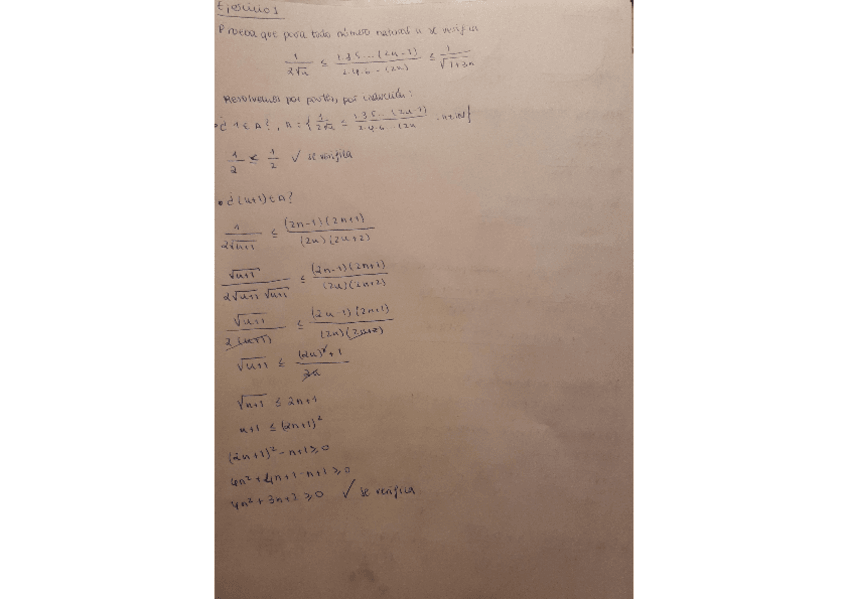 Ejercicios
Probar que para todo número natural n se verifica
1/(2√n) ≤ (1·3·5...(2n-1))/(2·4·6...(2n)) ≤ 1/√(1+3n)
Resolvemos por partes, por inducción:
• ¿1 ∈ A?, A = { 1/(2√n) ≤ (1·3·5...(2n-1))/(2·4·6...(2n)
1/2 ≤ 1/2 ✓ se verifica
• ¿(n+1) ∈ A?
1/(2√(n+1)) ≤ ((2n-1)(2n+1))/((2n)(2n+2))
√(n+1)/(2√(n+1) √(n+1)) ≤ ((2n-1)(2n+1))/((2n)(2n+2))
√(n+1)/(2(n+1)) ≤ ((2n-1)(2n+1))/((2n)(2n+2))
√(n+1) ≤ ((2n)²+1)/(2n)
√(n+1) ≤ 2n+1
n+1 ≤ (2n+1)²
(2n+1)² - n+1 ≥ 0
4n² + 4n+1-n+1 ≥ 0
4n² + 3n+2 ≥ 0 ✓ se verifica